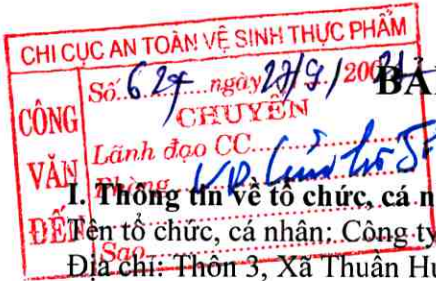 CHI CỤC AN TOÀN VỆ SINH THỰC PHẨM
CÔNG VĂN ĐẾN
Số 627 ngày 27/9/2021
CHUYỂN
Lãnh đạo CC
Phòng
Sao
BẢ
I. Thông tin về tổ chức, cá n
Tên tổ chức, cá nhân: Công ty
Địa chỉ: Thôn 3, Xã Thuần Hư